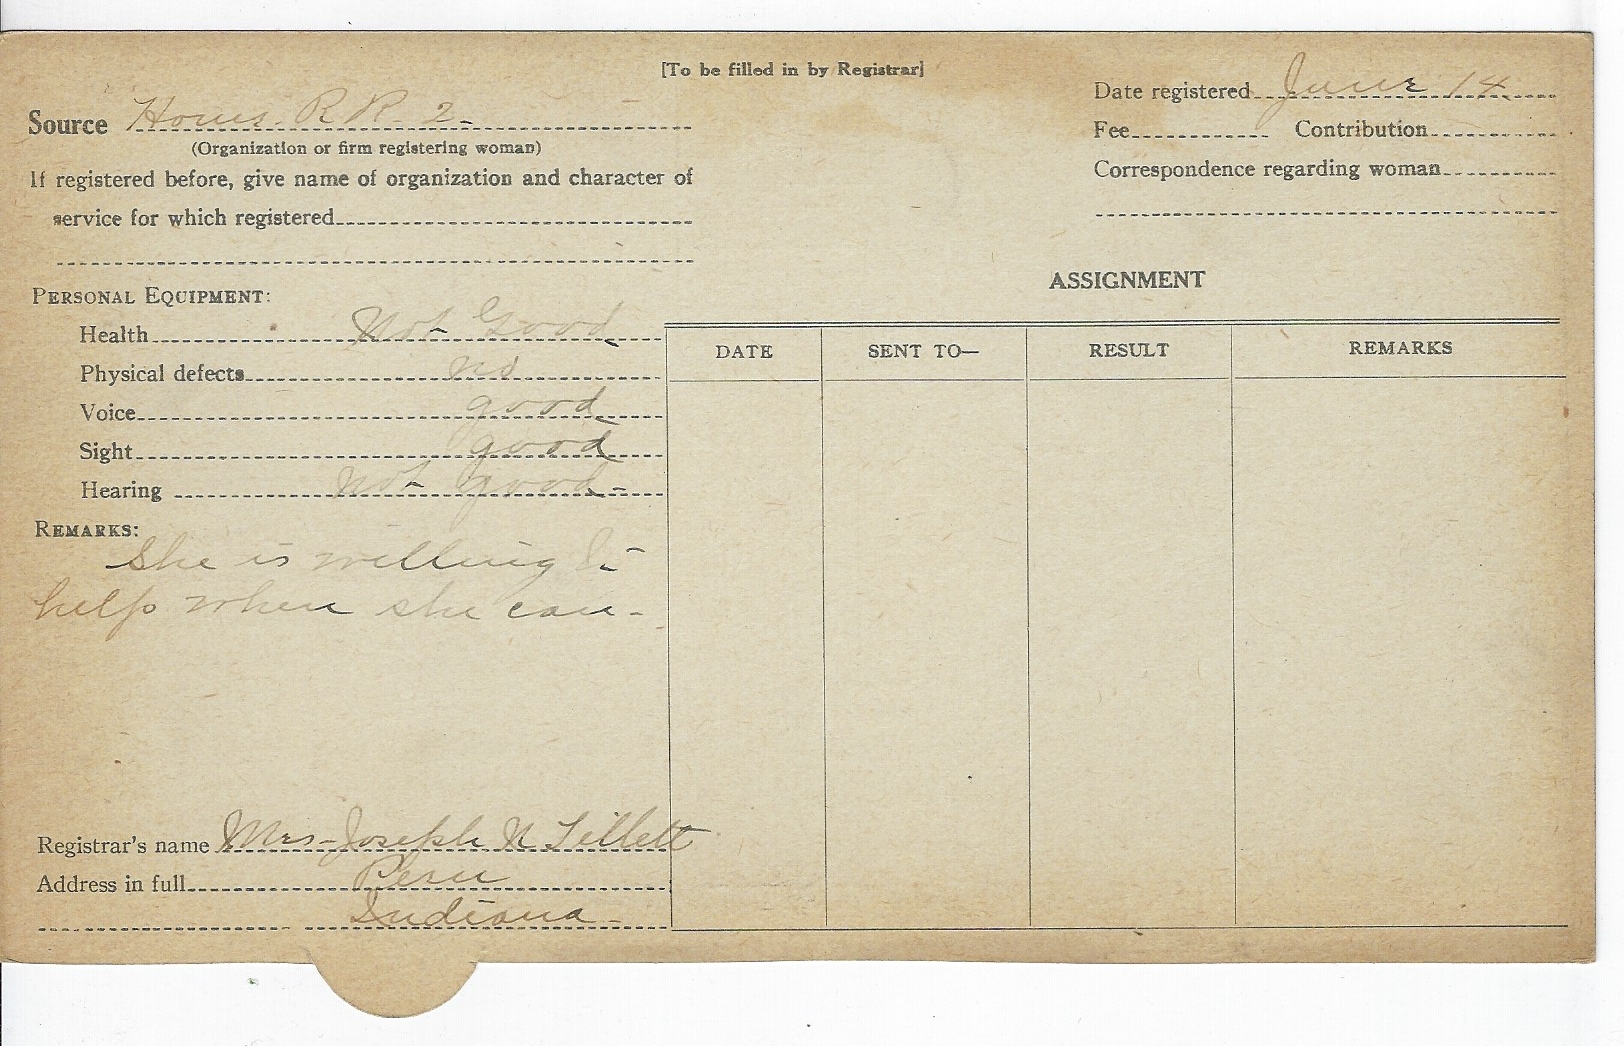 [To be filled in by Registrar]
Source Home R R 2
(Organization or firm registering woman)
If registered before, give name of organization and character of
service for which registered
Date registered June 14
Fee Contribution
Correspondence regarding woman
PERSONAL EQUIPMENT:
Health Not Good
Physical defects no
Voice good
Sight good
Hearing not good
REMARKS:
She is willing to
help when she can-
Registrar's name Mrs-Joseph N Tillett
Address in full Peru
Indiana
ASSIGNMENT
DATE SENT TO— RESULT REMARKS